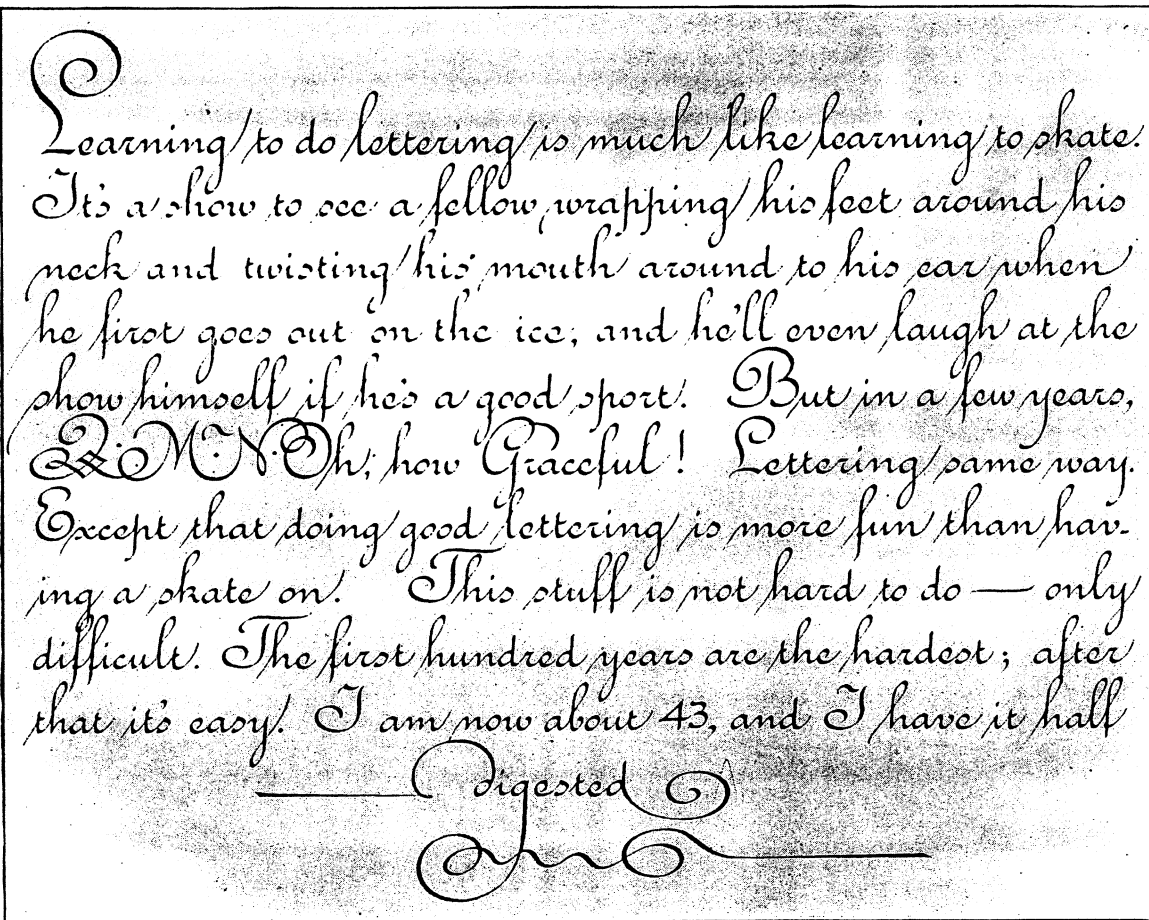 Learning to do lettering is much like learning to skate.
It's a show to see a fellow wrapping his feet around his
neck and twisting his mouth around to his ear when
he first goes out on the ice; and he'll even laugh at the
show himself if he's a good sport. But in a few years,
Q. M. N. Oh, how Graceful! Lettering same way.
Except that doing good lettering is more fun than hav-
ing a skate on! This stuff is not hard to do — only
difficult. The first hundred years are the hardest; after
that it's easy! I am now about 43, and I have it half
digested